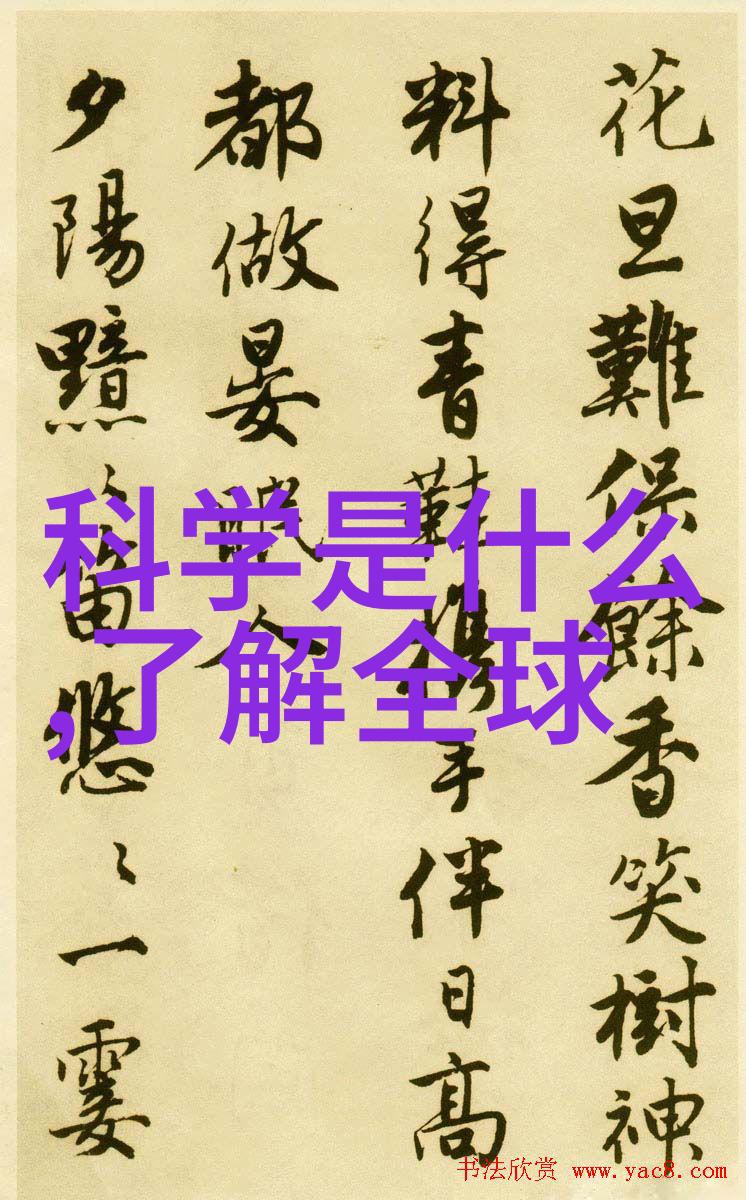 花旦難保餘香笑樹神
料得青鞋攜手伴日高
都做晏眠人
夕陽黯〻笛悠〻一霎
科学是什么
,了解全球
书法欣赏 www.yac8.com